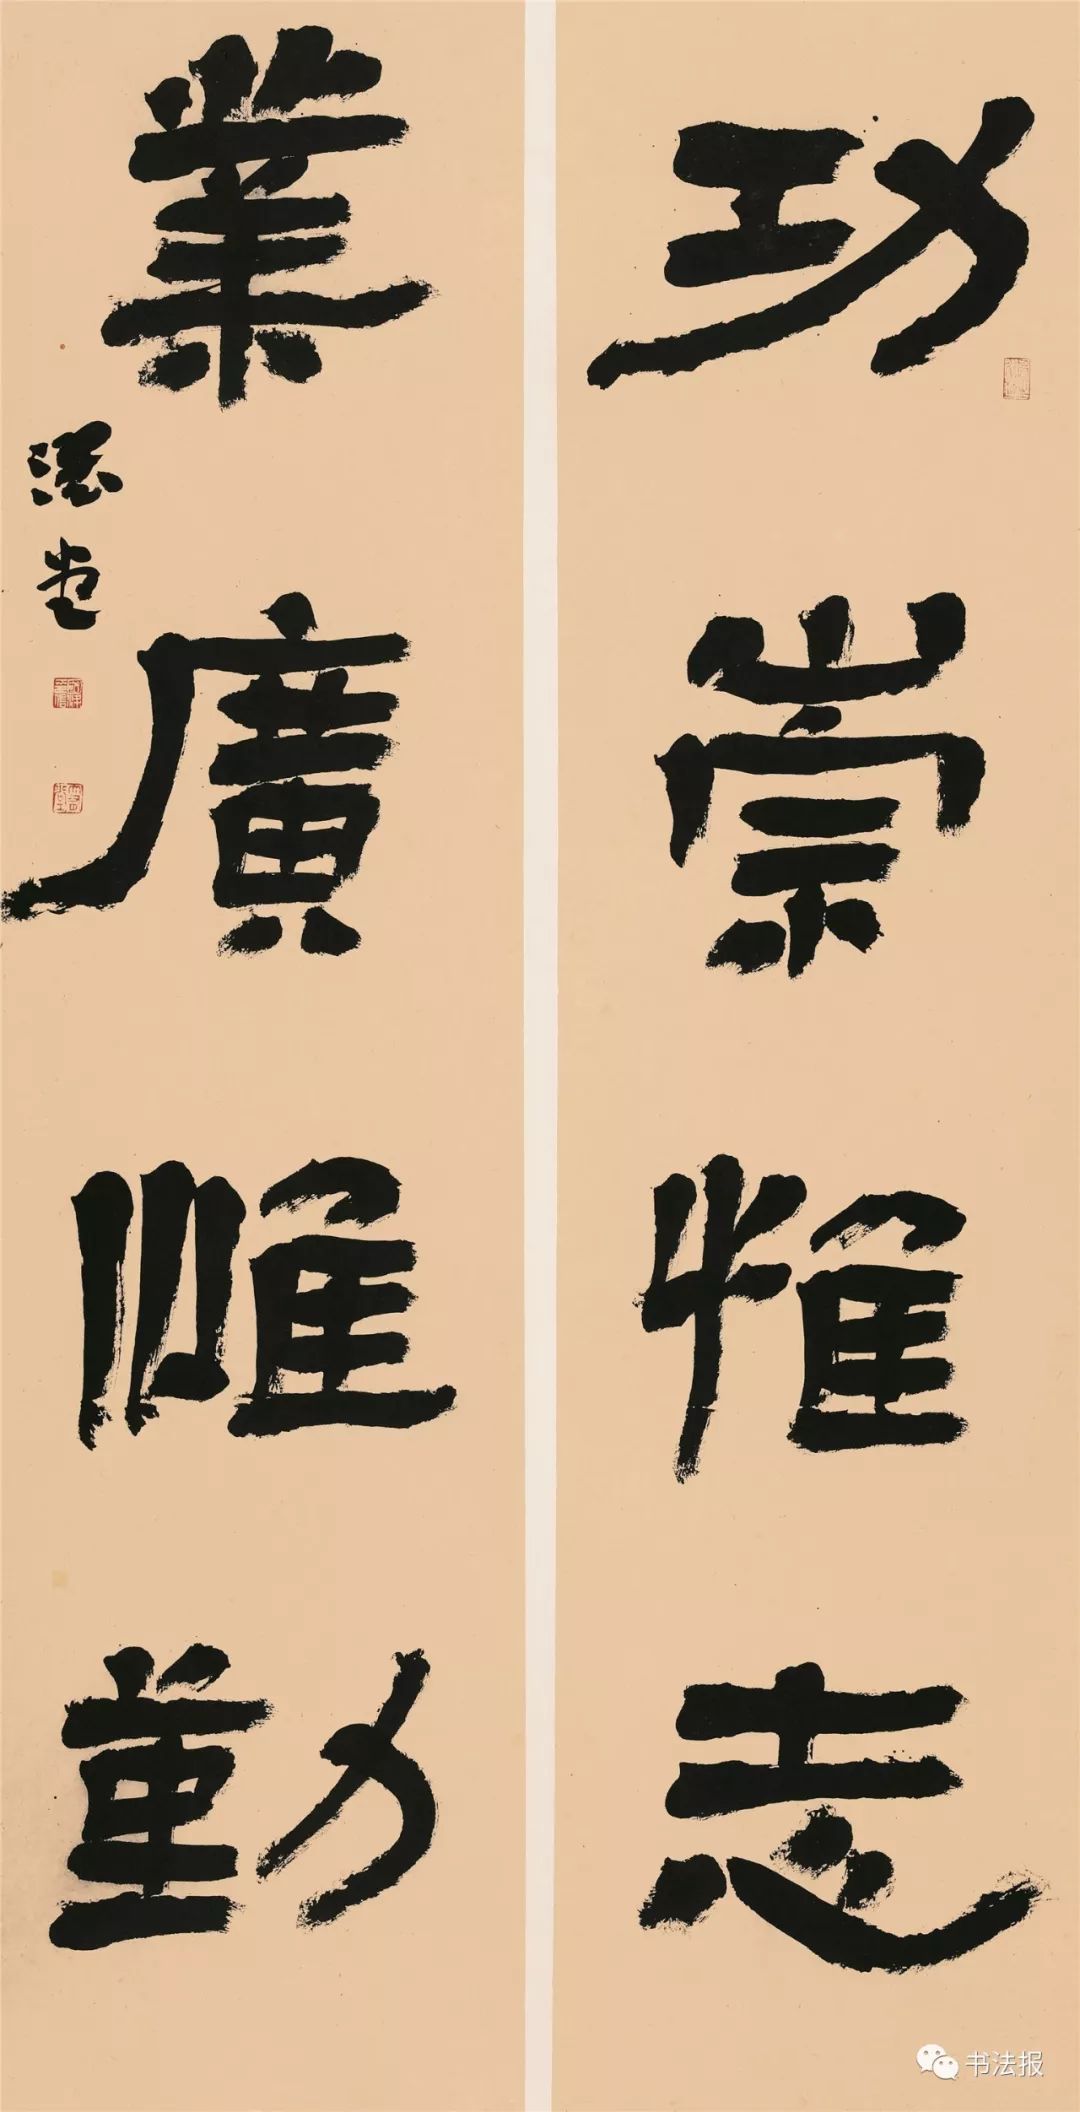 功崇惟志
業廣惟勤
书法报